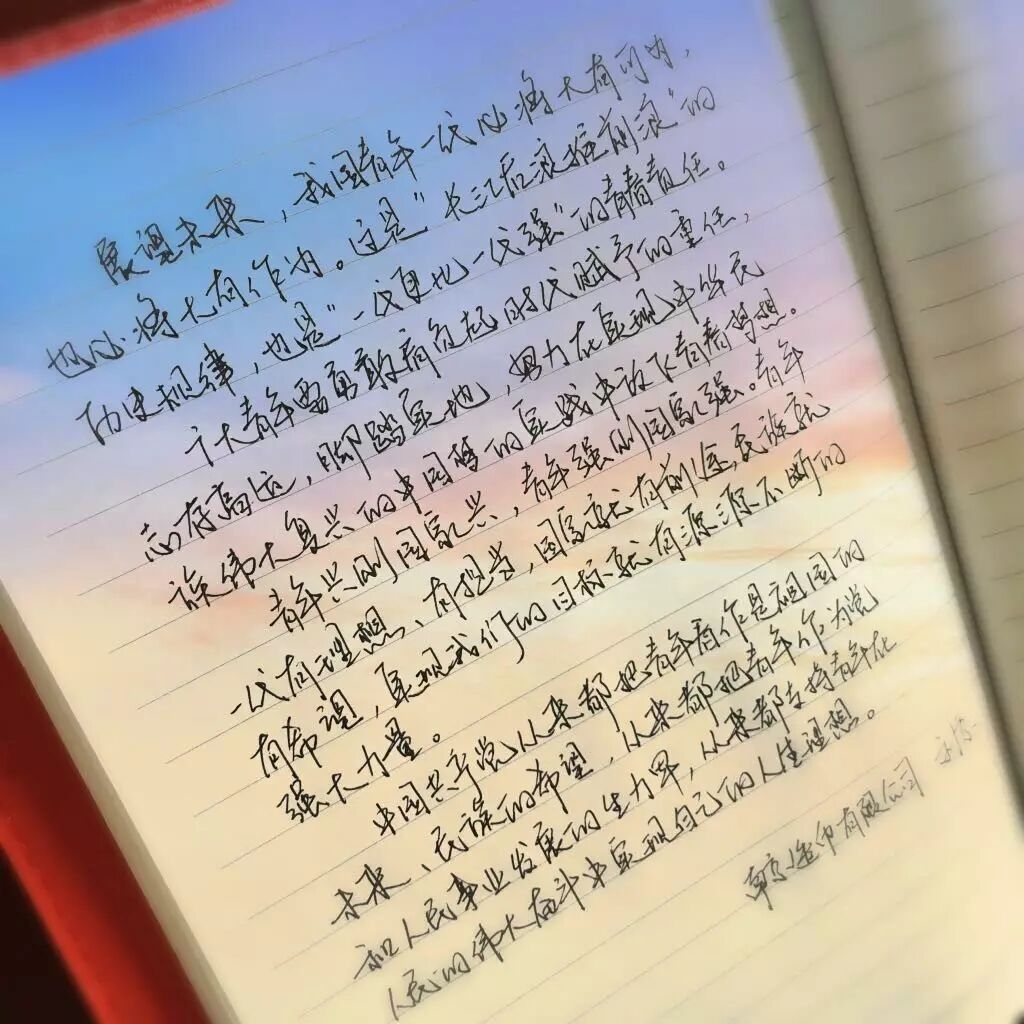 展望未来，我国青年一代必将大有可为，
也必将大有作为。这是“长江后浪推前浪”的
历史规律，也是“一代更比一代强”的青春责任。
广大青年要勇敢肩负起时代赋予的重任，
志存高远，脚踏实地，努力在实现中华民
族伟大复兴的中国梦的实践中放飞青春梦想。
青年兴则国家兴，青年强则国家强。青年
一代有理想、有担当，国家就有前途，民族就
有希望，实现我们的目标就有源源不断的
强大力量。
中国共产党从来都把青年看作是祖国的
未来、民族的希望，从来都把青年作为党
和人民事业发展的生力军，从来都支持青年在
人民的伟大奋斗中实现自己的人生理想。
南京造币有限公司